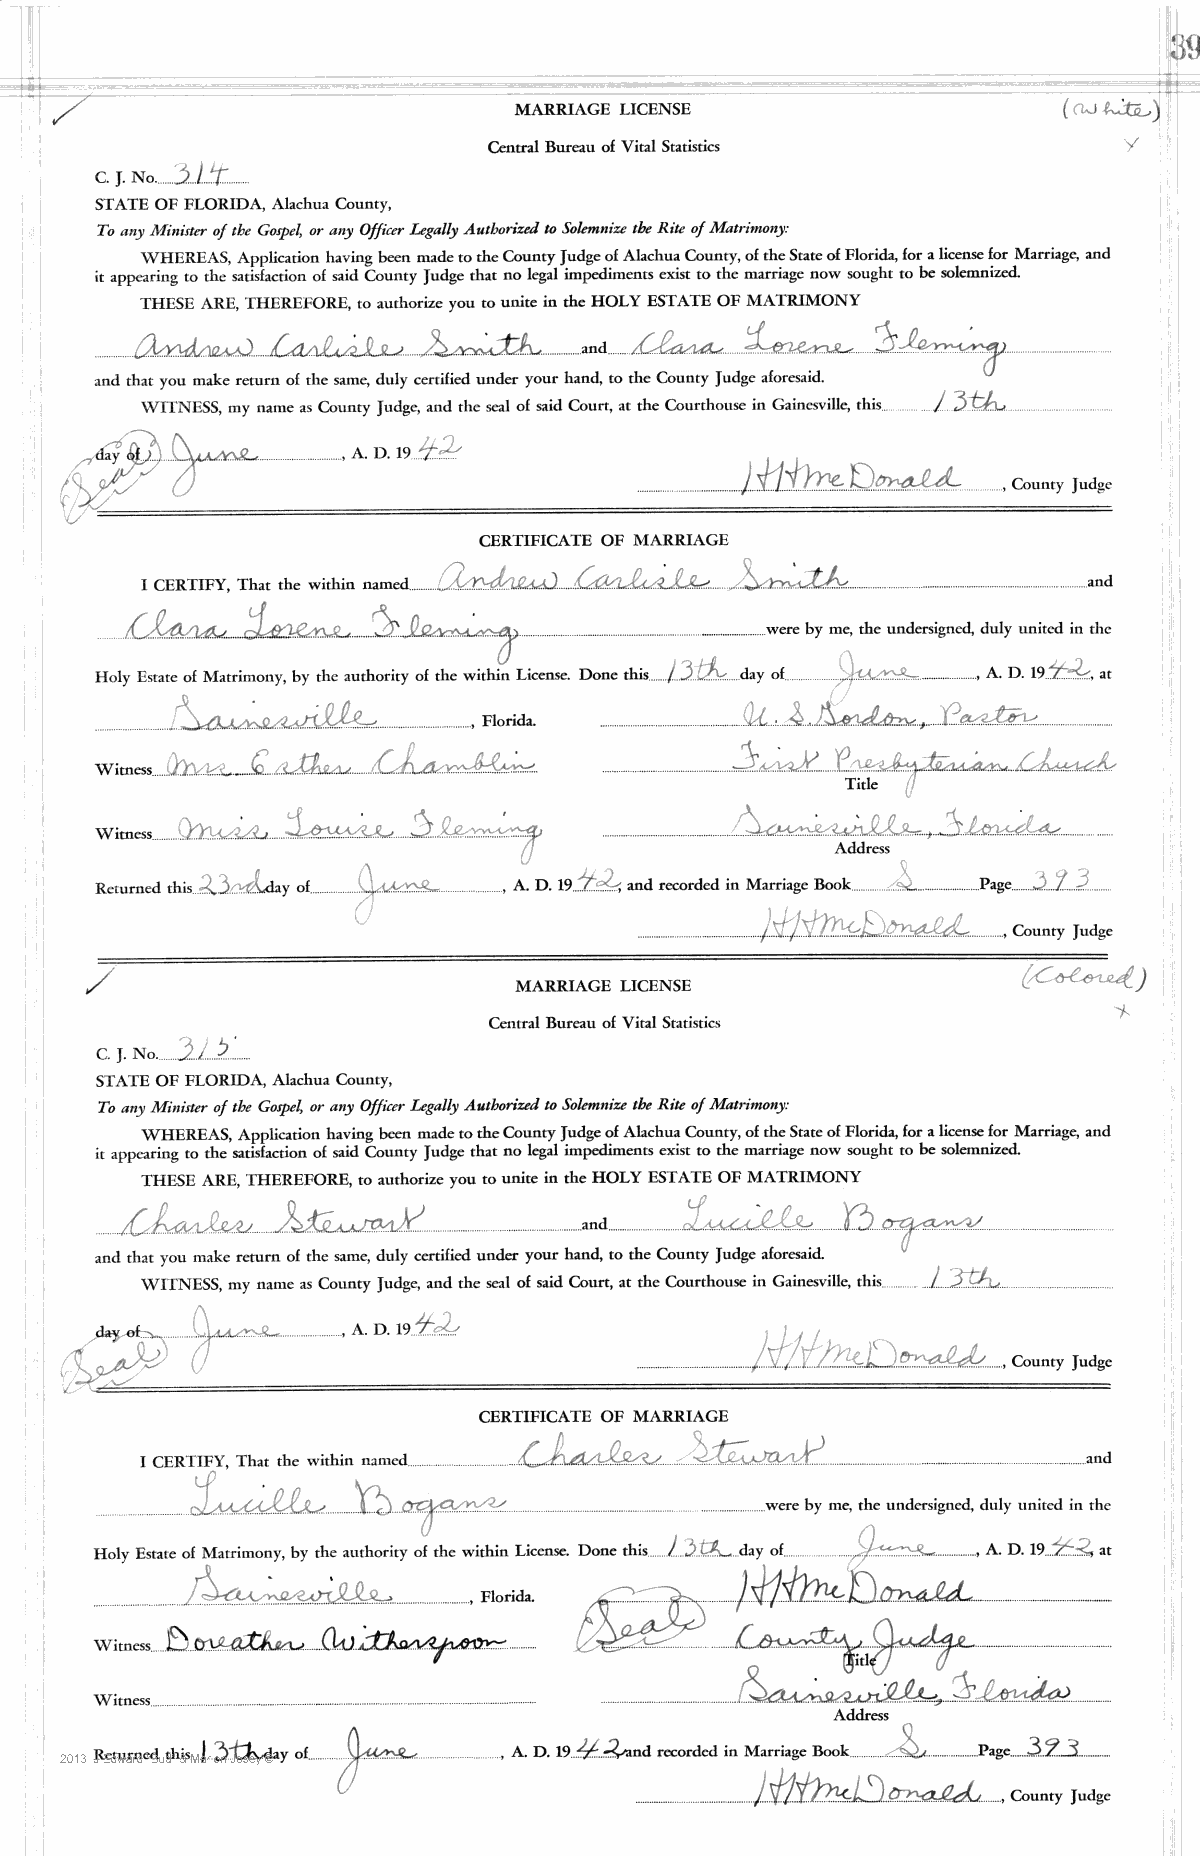 39
MARRIAGE LICENSE (White)
Central Bureau of Vital Statistics x
C. J. No. 314
STATE OF FLORIDA, Alachua County,
To any Minister of the Gospel, or any Officer Legally Authorized to Solemnize the Rite of Matrimony:
WHEREAS, Application having been made to the County Judge of Alachua County, of the State of Florida, for a license for Marriage, and
it appearing to the satisfaction of said County Judge that no legal impediments exist to the marriage now sought to be solemnized.
THESE ARE, THEREFORE, to authorize you to unite in the HOLY ESTATE OF MATRIMONY
Andrew Carlisle Smith and Clara Lorene Fleming
and that you make return of the same, duly certified under your hand, to the County Judge aforesaid.
WITNESS, my name as County Judge, and the seal of said Court, at the Courthouse in Gainesville, this 13th
day of June, A. D. 1942
(Seal) HHMcDonald, County Judge
CERTIFICATE OF MARRIAGE
I CERTIFY, That the within named Andrew Carlisle Smith and
Clara Lorene Fleming were by me, the undersigned, duly united in the
Holy Estate of Matrimony, by the authority of the within License. Done this 13th day of June, A. D. 1942, at
Gainesville, Florida. U. S. Gordon, Pastor
Witness Mrs Esther Chamblin First Presbyterian Church
Title
Witness Miss Louise Fleming Gainesville, Florida
Address
Returned this 23rd day of June, A. D. 1942, and recorded in Marriage Book S Page 393
HHMcDonald, County Judge
MARRIAGE LICENSE (Colored)
Central Bureau of Vital Statistics x
C. J. No. 315
STATE OF FLORIDA, Alachua County,
To any Minister of the Gospel, or any Officer Legally Authorized to Solemnize the Rite of Matrimony:
WHEREAS, Application having been made to the County Judge of Alachua County, of the State of Florida, for a license for Marriage, and
it appearing to the satisfaction of said County Judge that no legal impediments exist to the marriage now sought to be solemnized.
THESE ARE, THEREFORE, to authorize you to unite in the HOLY ESTATE OF MATRIMONY
Charles Stewart and Lucille Bogans
and that you make return of the same, duly certified under your hand, to the County Judge aforesaid.
WITNESS, my name as County Judge, and the seal of said Court, at the Courthouse in Gainesville, this 13th
day of June, A. D. 1942
(Seal) HHMcDonald, County Judge
CERTIFICATE OF MARRIAGE
I CERTIFY, That the within named Charles Stewart and
Lucille Bogans were by me, the undersigned, duly united in the
Holy Estate of Matrimony, by the authority of the within License. Done this 13th day of June, A. D. 1942, at
Gainesville, Florida. (Seal) HHMcDonald
Witness Doreather Witherspoon County Judge
Title
Witness Gainesville, Florida
Address
2013 Returned this 13th day of June, A. D. 1942 and recorded in Marriage Book S Page 393
HHMcDonald, County Judge